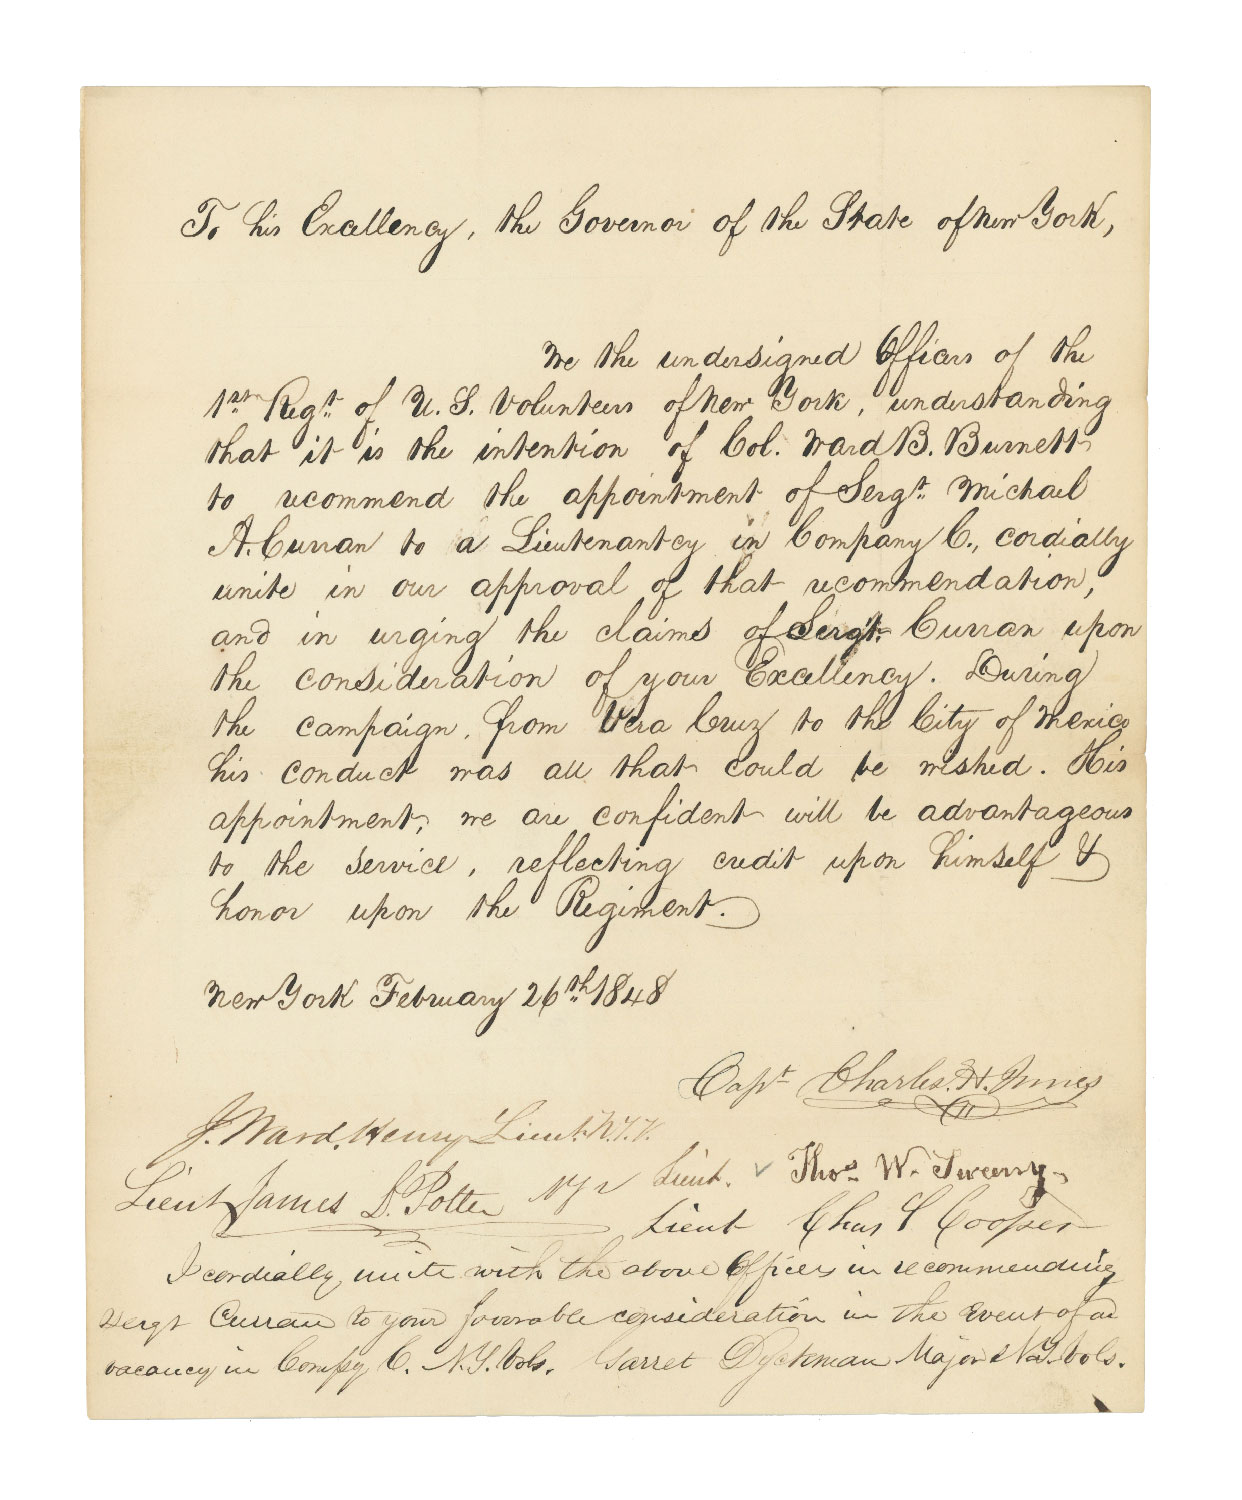 To his Excellency, the Governor of the State of New York,
We the undersigned Officers of the
1st Regt. of U.S. Volunteers of New York, understanding
that it is the intention of Col. Ward B. Burnett
to recommend the appointment of Sergt. Michael
A. Curran to a Lieutenantcy in Company C., cordially
unite in our approval of that recommendation,
and in urging the claims of Sergt. Curran upon
the consideration of your Excellency. During
the campaign, from Vera Cruz to the City of Mexico
his conduct was all that could be wished. His
appointment, we are confident will be advantageous
to the service, reflecting credit upon himself &
honor upon the Regiment.
New York February 26th 1848
Capt Charles. H. Innes
J. Ward. Henry Lieut. N.Y.V.
Lieut. Thos. W. Sweeny
Lieut James D. Potter N Y V
Lieut Chas S Cooper
I cordially unite with the above Officers in recommending
Sergt Curran to your favorable consideration in the event of a
vacancy in Compy C. N.Y. Vols. Garret Dyckman Major N.Y. Vols.